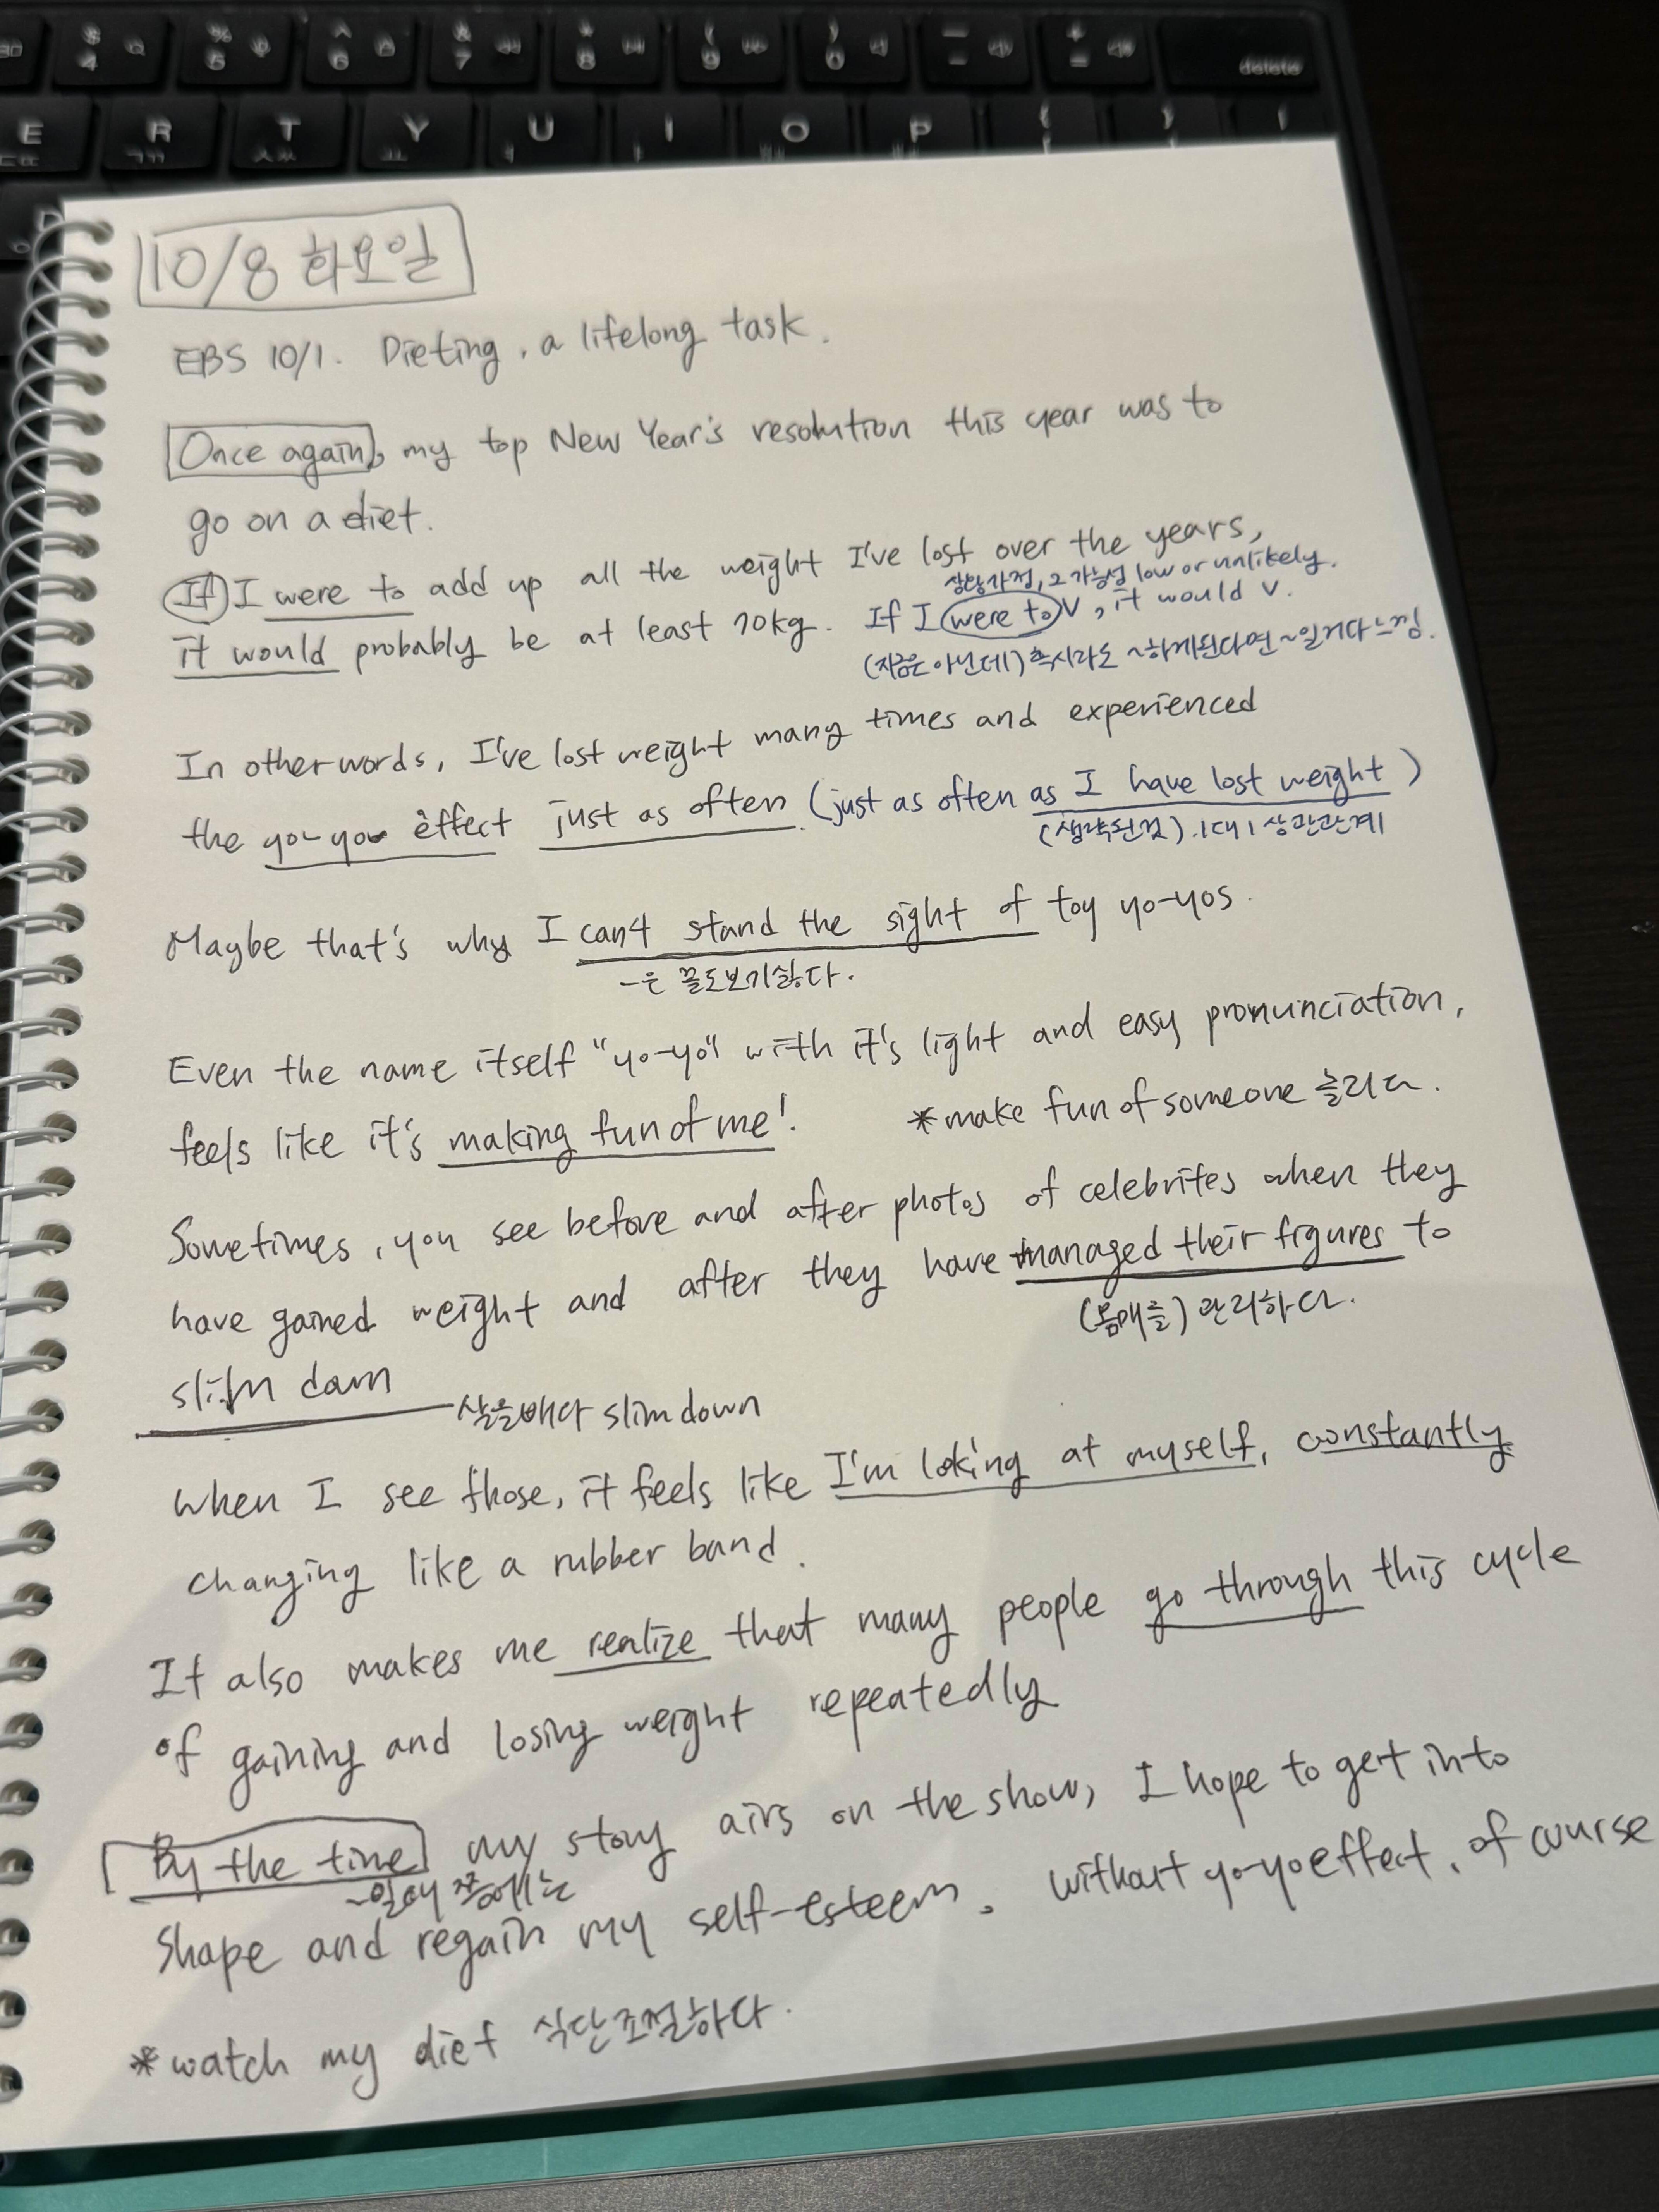 $ 4 % 5 ^ 6 & 7 * 8 ( 9 ) 0 - + = delete
E R T Y U I O P { }
ㄷㄸ ㄱㄲ ㅅㅆ ㅛ ㅕ ㅑ
10/8 화요일
EBS 10/1. Dieting, a lifelong task.
Once again, my top New Year's resolution this year was to
go on a diet.
If I were to add up all the weight I've lost over the years,
상황가정, 그 가능성 low or unlikely.
it would probably be at least 70kg. If I were to V, it would V.
(지금은 아닌데) 혹시라도 ~하게된다면 ~일거다 느낌.
In other words, I've lost weight many times and experienced
the yo-yo effect just as often (just as often as I have lost weight)
(생략된것). 1대1 상관관계
Maybe that's why I can't stand the sight of toy yo-yos.
-은 꼴도보기싫다.
Even the name itself "yo-yo" with it's light and easy pronunciation,
feels like it's making fun of me! *make fun of someone 놀리다.
Sometimes, you see before and after photos of celebrites when they
have gained weight and after they have managed their figures to
(몸매를) 관리하다.
slim down 살을빼다 slim down
when I see those, it feels like I'm loking at myself, constantly
changing like a rubber band.
It also makes me realize that many people go through this cycle
of gaining and losing weight repeatedly
By the time my story airs on the show, I hope to get into
~일때 쯤에는
shape and regain my self-esteem. without yo-yo effect, of course
*watch my diet 식단조절하다.